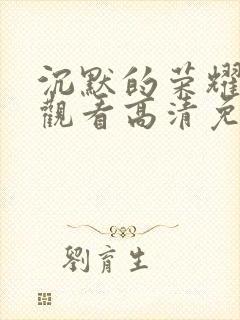 沉默的荣耀
觀看高清免
劉育生